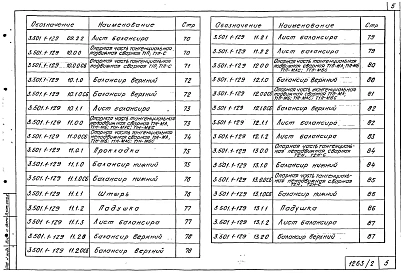 5
Обозначение Наименование Стр
3.501.1-129 09.2.2 Лист балансира 70
3.501.1-129 10.00 Опорная часть тангенциальная подвижная сборная
3.501.1-129 10.00СБ Опорная часть тангенциальная подвижная сборная 71
3.501.1-129 10.1.0 Балансир верхний 72
3.501.1-129 10.1.0СБ Балансир верхний 72
3.501.1-129 10.1.1 Лист балансира 73
3.501.1-129 11.00 Опорная часть тангенциальная 73
3.501.1-129 11.00СБ Опорная часть тангенциальная 74
3.501.1-129 11.0.1 Прокладка 75
3.501.1-129 11.1.0 Балансир нижний 75
3.501.1-129 11.1.0СБ Балансир нижний 76
3.501.1-129 11.1.1 Штырь
3.501.1-129 11.1.2 Ладушка 77
3.501.1-129 11.1.3 Лист балансира 77
3.501.1-129 11.2.0 Балансир верхний 78
3.501.1-129 11.2.0СБ Балансир верхний 78
Обозначение Наименование Стр
3.501.1-129 11.2.1 Лист балансира 79
3.501.1-129 11.2.2 Лист балансира 79
3.501.1-129 12.00 Опорная часть тангенциальная подвижная сборная 80
3.501.1-129 12.1.0 Балансир верхний 80
3.501.1-129 12.00СБ Опорная часть тангенциальная подвижная сборная 81
3.501.1-129 12.1.0СБ Балансир верхний 82
3.501.1-129 12.1.1 Лист балансира 82
3.501.1-129 12.1.2 Лист балансира 83
3.501.1-129 13.00 Опорная часть тангенциальная неподвижная сборная 84
3.501.1-129 13.1.0 Балансир нижний 84
3.501.1-129 13.00СБ Опорная часть тангенциальная неподвижная сборная 85
3.501.1-129 13.1.0СБ Балансир нижний 86
3.501.1-129 13.1.1 Подушка 86
3.501.1-129 13.1.2 Лист балансира 87
3.501.1-129 13.2.0 Балансир верхний 87
1263/2 5